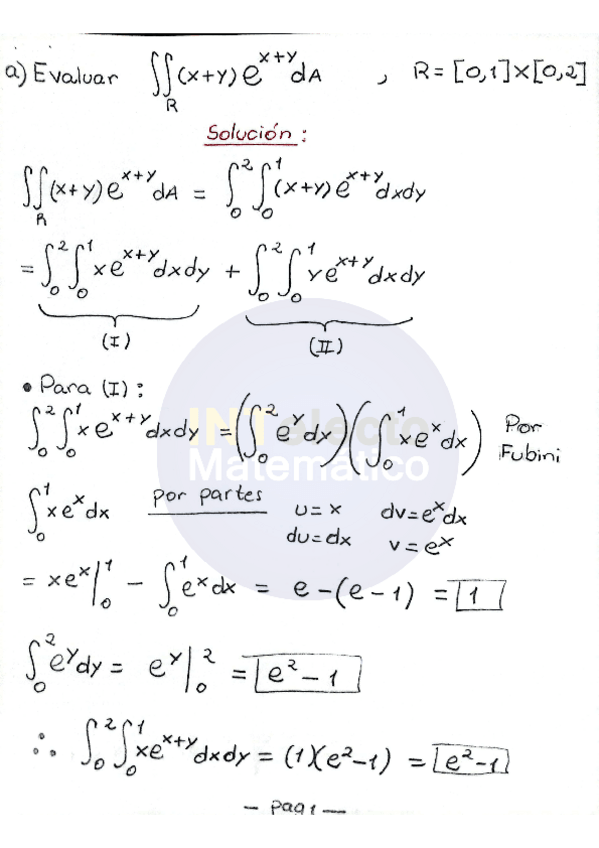 a) Evaluar ∬_R (x+y) e^{x+y} dA , R = [0,1]×[0,2]
Solución:
∬_R (x+y) e^{x+y} dA = ∫_0^2 ∫_0^1 (x+y) e^{x+y} dx dy
= ∫_0^2 ∫_0^1 x e^{x+y} dx dy + ∫_0^2 ∫_0^1 y e^{x+y} dx dy
(I) (II)
• Para (I):
∫_0^2 ∫_0^1 x e^{x+y} dx dy = (∫_0^2 e^y dx)(∫_0^1 x e^x dx) Por Fubini
INTelecto
Matemático
∫_0^1 x e^x dx por partes u = x dv = e^x dx
du = dx v = e^x
= x e^x |_0^1 − ∫_0^1 e^x dx = e − (e − 1) = 1
∫_0^2 e^y dy = e^y |_0^2 = e^2 − 1
∴ ∫_0^2 ∫_0^1 x e^{x+y} dx dy = (1)(e^2 − 1) = e^2 − 1
— Pag 1 —